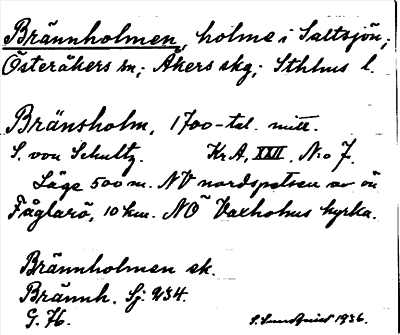 Brännholmen, holme i Saltsjön;
Österåkers sn; Åkers skg; Sthlms l.
Bränsholm, 1700-tal. mitt.
S. von Schultz. Kr.A, XXII, N:o 7.
Läge 500 m. NV nordspetsen av ön
Fåglarö, 10 km. NO Vaxholms kyrka.
Brännholmen ek.
Brännh. Sj. 234.
G. H. 1936.